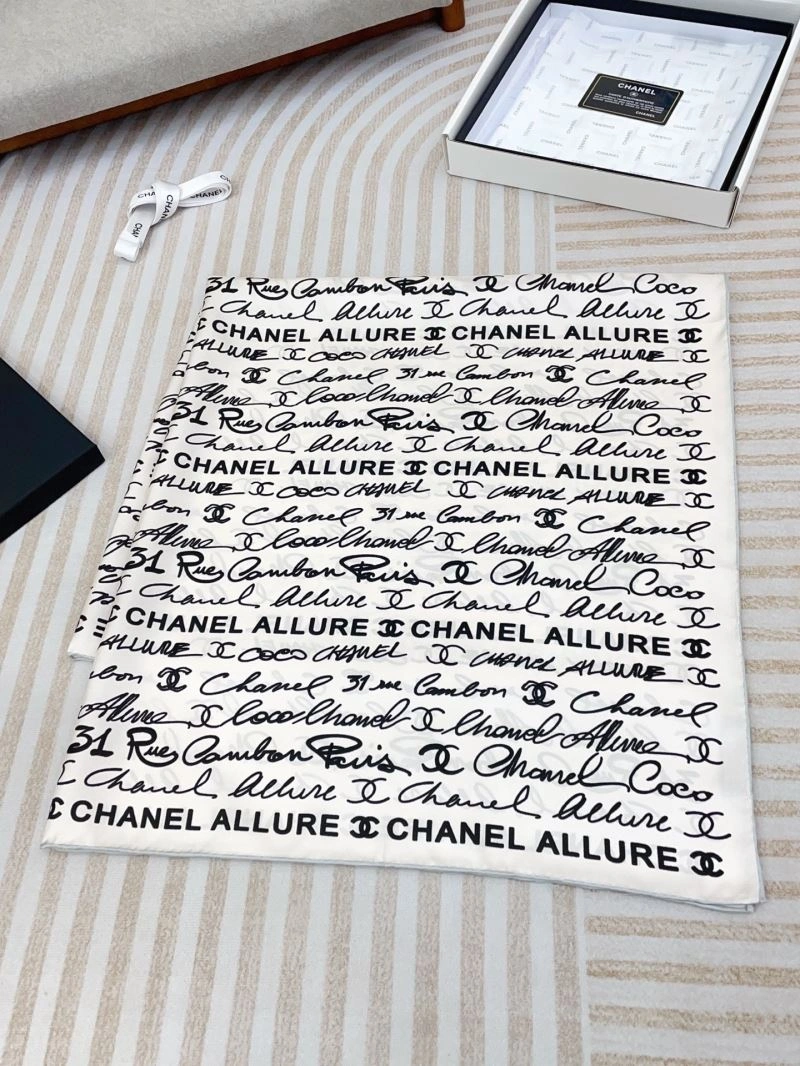 CHANEL
CHANEL
CHANEL
CHANEL
31 Rue Cambon Paris Chanel Coco
Chanel Allure Chanel Allure
CHANEL ALLURE CHANEL ALLURE
ALLURE COCO CHANEL CHANEL ALLURE
bon Chanel 31 rue Cambon Chanel
Allure Coco Chanel Chanel Allure
31 Rue Cambon Paris Chanel Coco
Chanel Allure Chanel Allure
CHANEL ALLURE CHANEL ALLURE
ALLURE COCO CHANEL CHANEL ALLURE
bon Chanel 31 rue Cambon Chanel
Allure Coco Chanel Chanel Allure
31 Rue Cambon Paris Chanel Coco
Chanel Allure Chanel Allure
CHANEL ALLURE CHANEL ALLURE
ALLURE COCO CHANEL CHANEL ALLURE
bon Chanel 31 rue Cambon Chanel
Allure Coco Chanel Chanel Allure
31 Rue Cambon Paris Chanel Coco
Chanel Allure Chanel Allure
CHANEL ALLURE CHANEL ALLURE